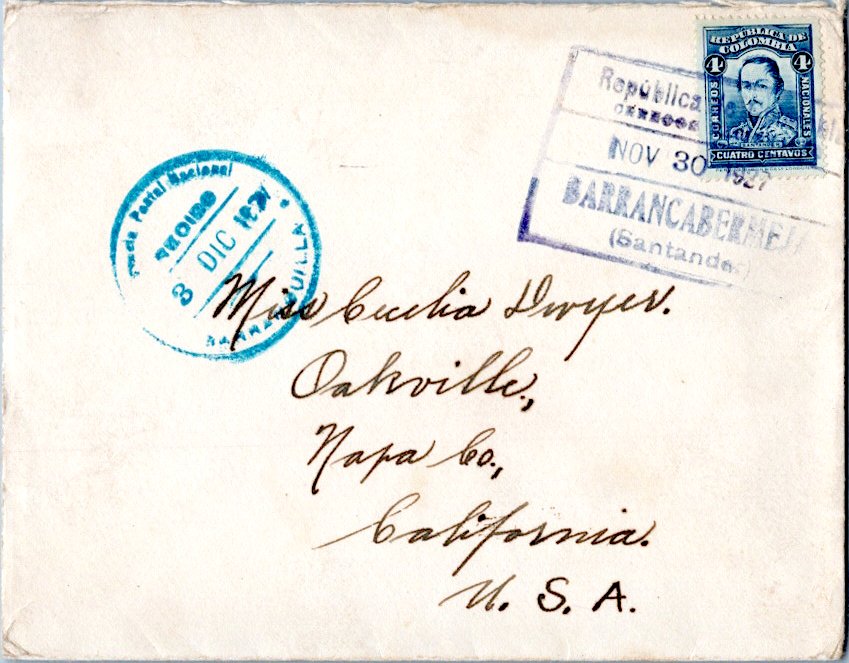 REPÚBLICA DE
COLOMBIA
4 4
CORREOS
NACIONALES
SANTANDER
CUATRO CENTAVOS
República
CORREOS
NOV 30 1927
BARRANCABERMEJ
(Santander)
Postal Nacional
8 DIC 1927
BARRANQUILLA
Miss Cecelia Dwyer.
Oakville,
Napa Co.,
California.
U. S. A.